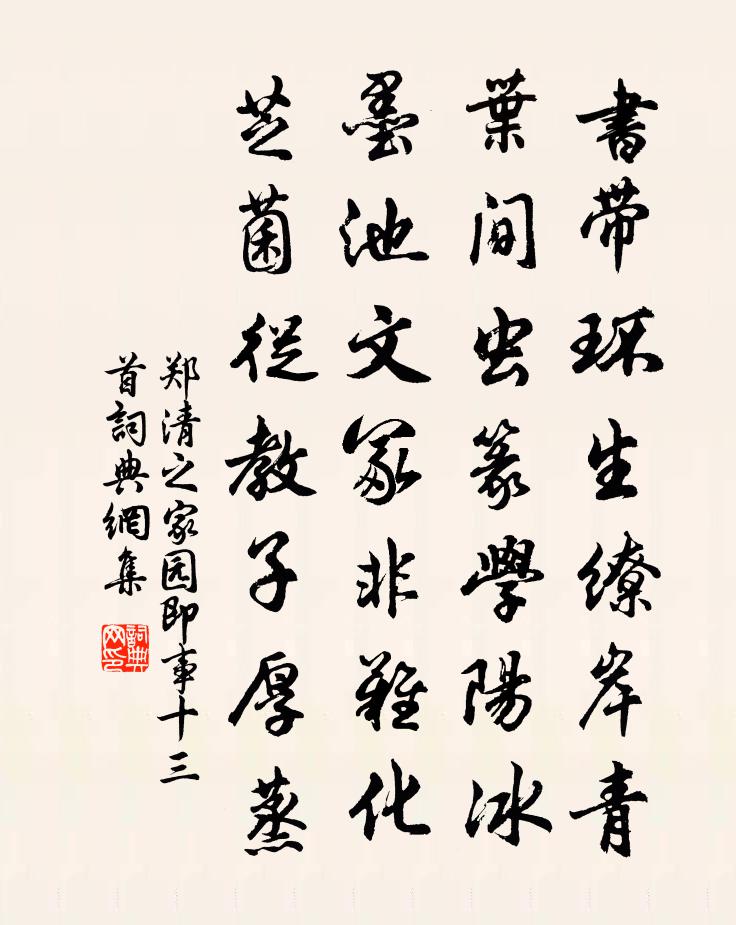 書帶環生繚岸青
葉間虫篆學陽冰
墨池文冢非難化
芝菌從教子厚蒸
郑清之家园即事十三
首詞典網集
詞典
网印